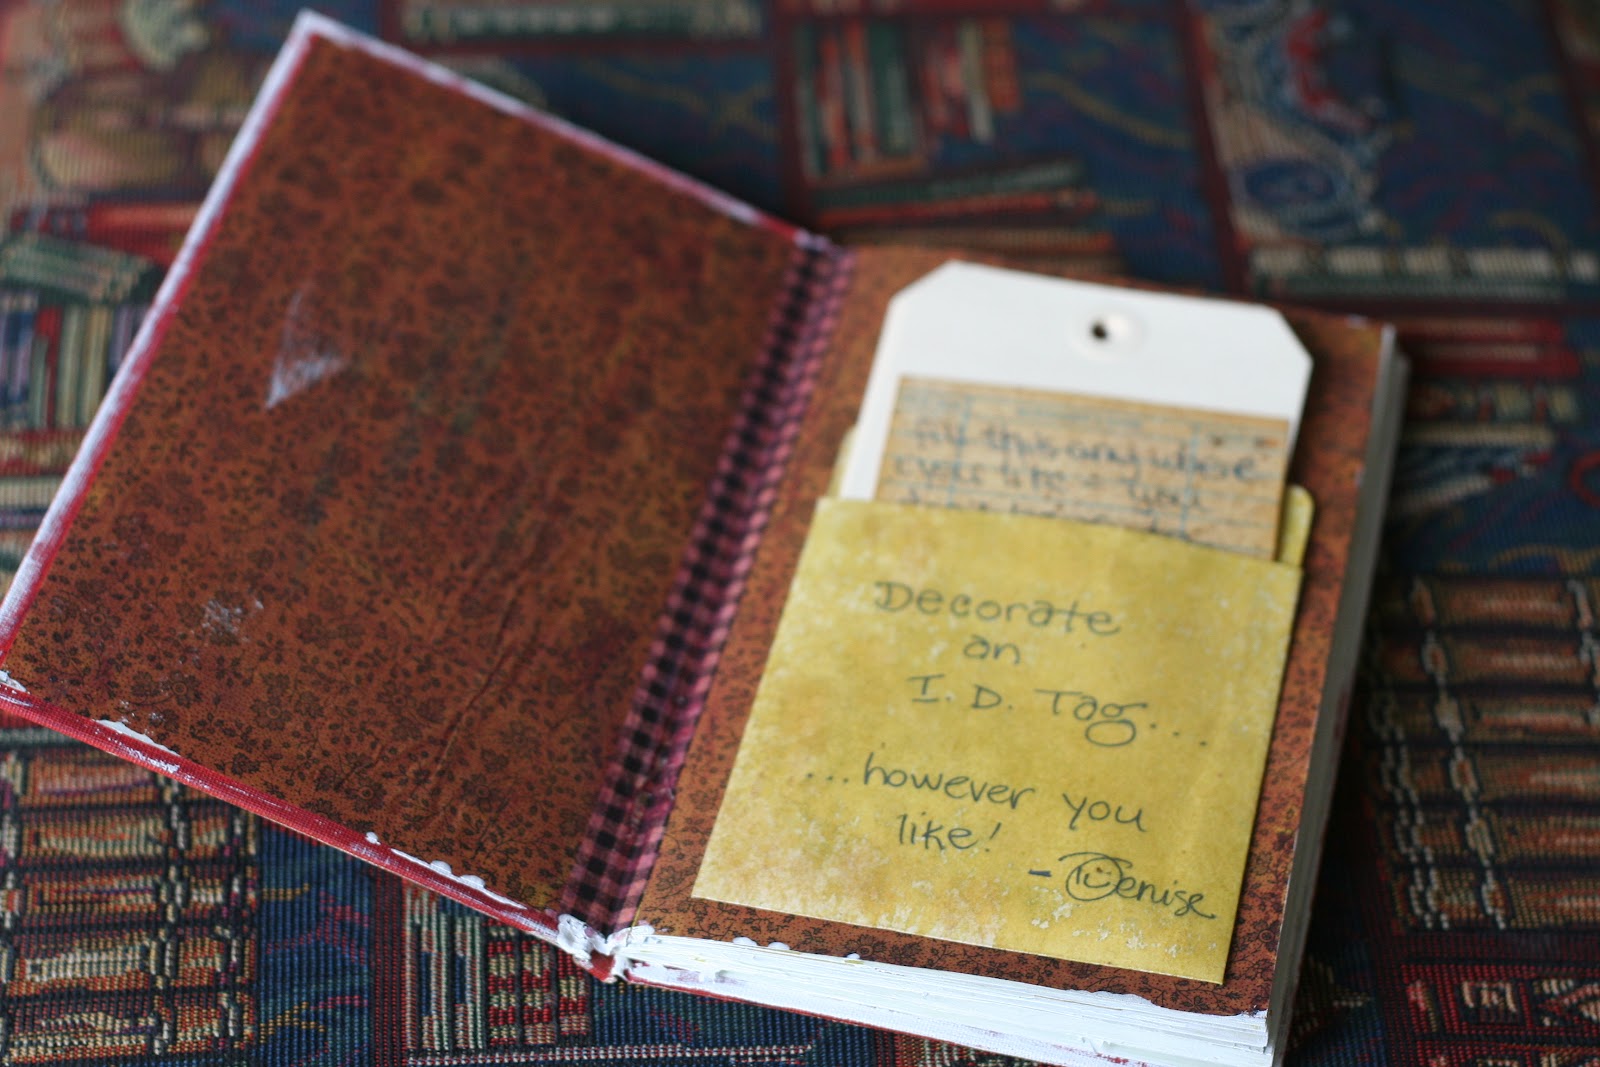 fill this any where
you like - use
Decorate
an
I.D. Tag...
...however you
like!
- Denise